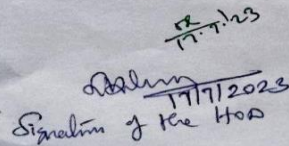 17.7.'23
17/7/2023
Signature of the HOD